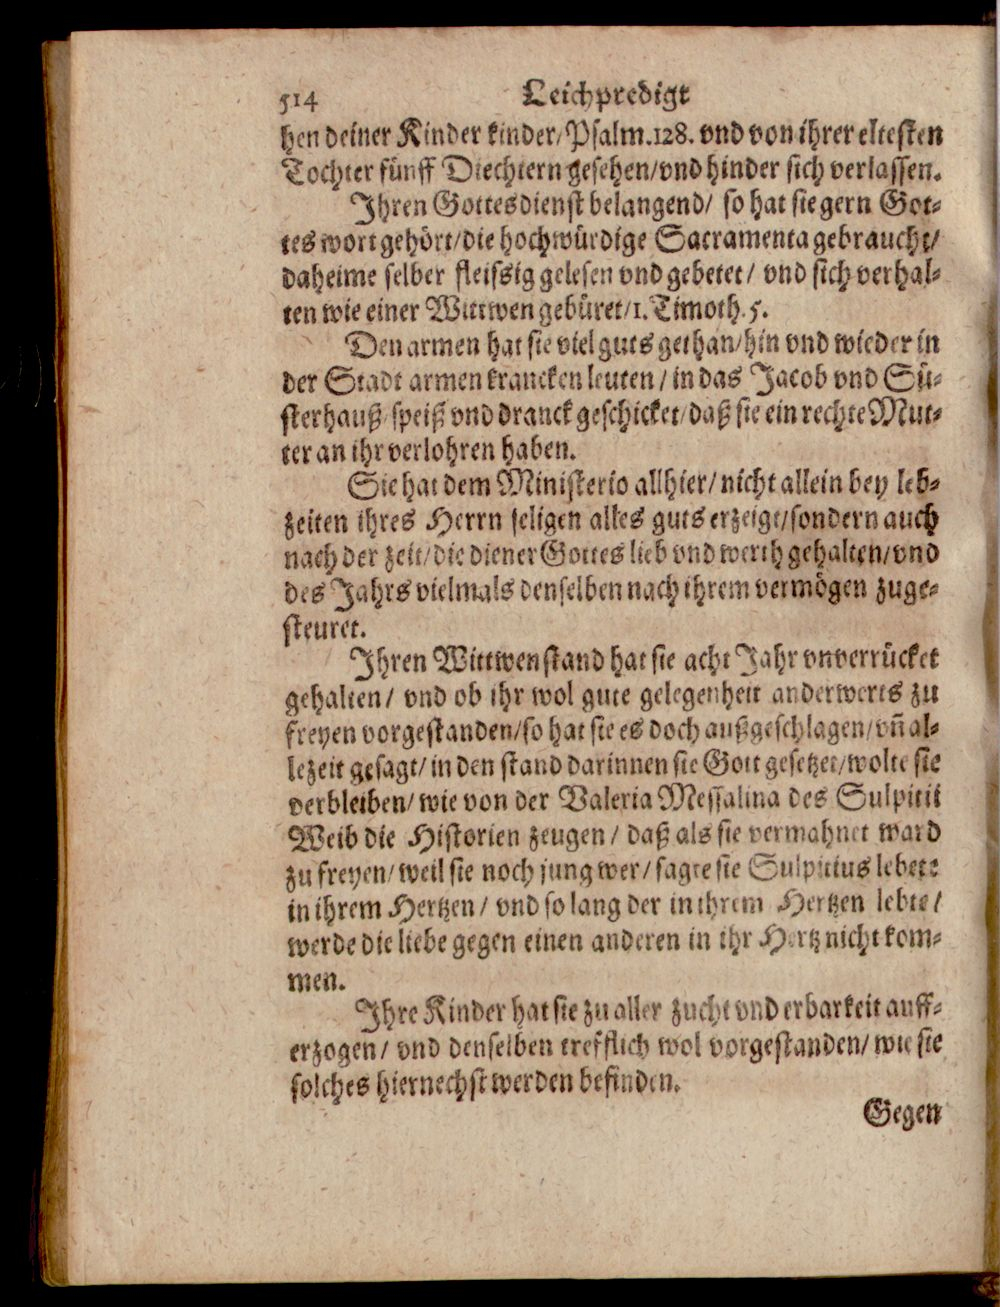 514 Leichpredigt
hen deiner Kinder kinder/Psalm.128. vnd von ihrer eltesten
Tochter fünff Diechtern gesehen/vnd hinder sich verlassen.
Ihren Gottesdienst belangend/ so hat sie gern Got-
tes wort gehört/die hochwürdige Sacramenta gebraucht/
daheime selber fleissig gelesen vnd gebetet/ vnd sich verhal-
ten wie einer Wittwen gebüret/1. Timoth. 5.
Den armen hat sie viel guts gethan/hin vnd wieder in
der Stadt armen krancken leuten/ in das Jacob vnd Sü-
sterhauß/speiß vnd dranck geschicket/daß sie ein rechte Mut-
ter an ihr verlohren haben.
Sie hat dem Ministerio allhier/nicht allein bey leb-
zeiten ihres Herrn seligen alles guts erzeigt/sondern auch
nach der zeit/die diener Gottes lieb vnd werth gehalten/vnd
des Jahrs vielmals denselben nach ihrem vermögen zuge-
steuret.
Ihren Wittwenstand hat sie acht Jahr vnverrücket
gehalten/ vnd ob ihr wol gute gelegenheit anderwerts zu
freyen vorgestanden/so hat sie es doch außgeschlagen/vñ al-
lezeit gesagt/in den stand darinnen sie Gott gesetzet/wolte sie
verbleiben/wie von der Valeria Messalina des Sulpitii
Weib die Historien zeugen/ daß als sie vermahnet ward
zu freyen/weil sie noch jung wer/sagte sie Sulpitius lebete
in ihrem Hertzen/ vnd so lang der in ihrem Hertzen lebte/
werde die liebe gegen einen anderen in ihr Hertz nicht kom-
men.
Ihre Kinder hat sie zu aller zucht vnd erbarkeit auff-
erzogen/ vnd denselben trefflich wol vorgestanden/wie sie
solches hiernechst werden befinden.
Gegen